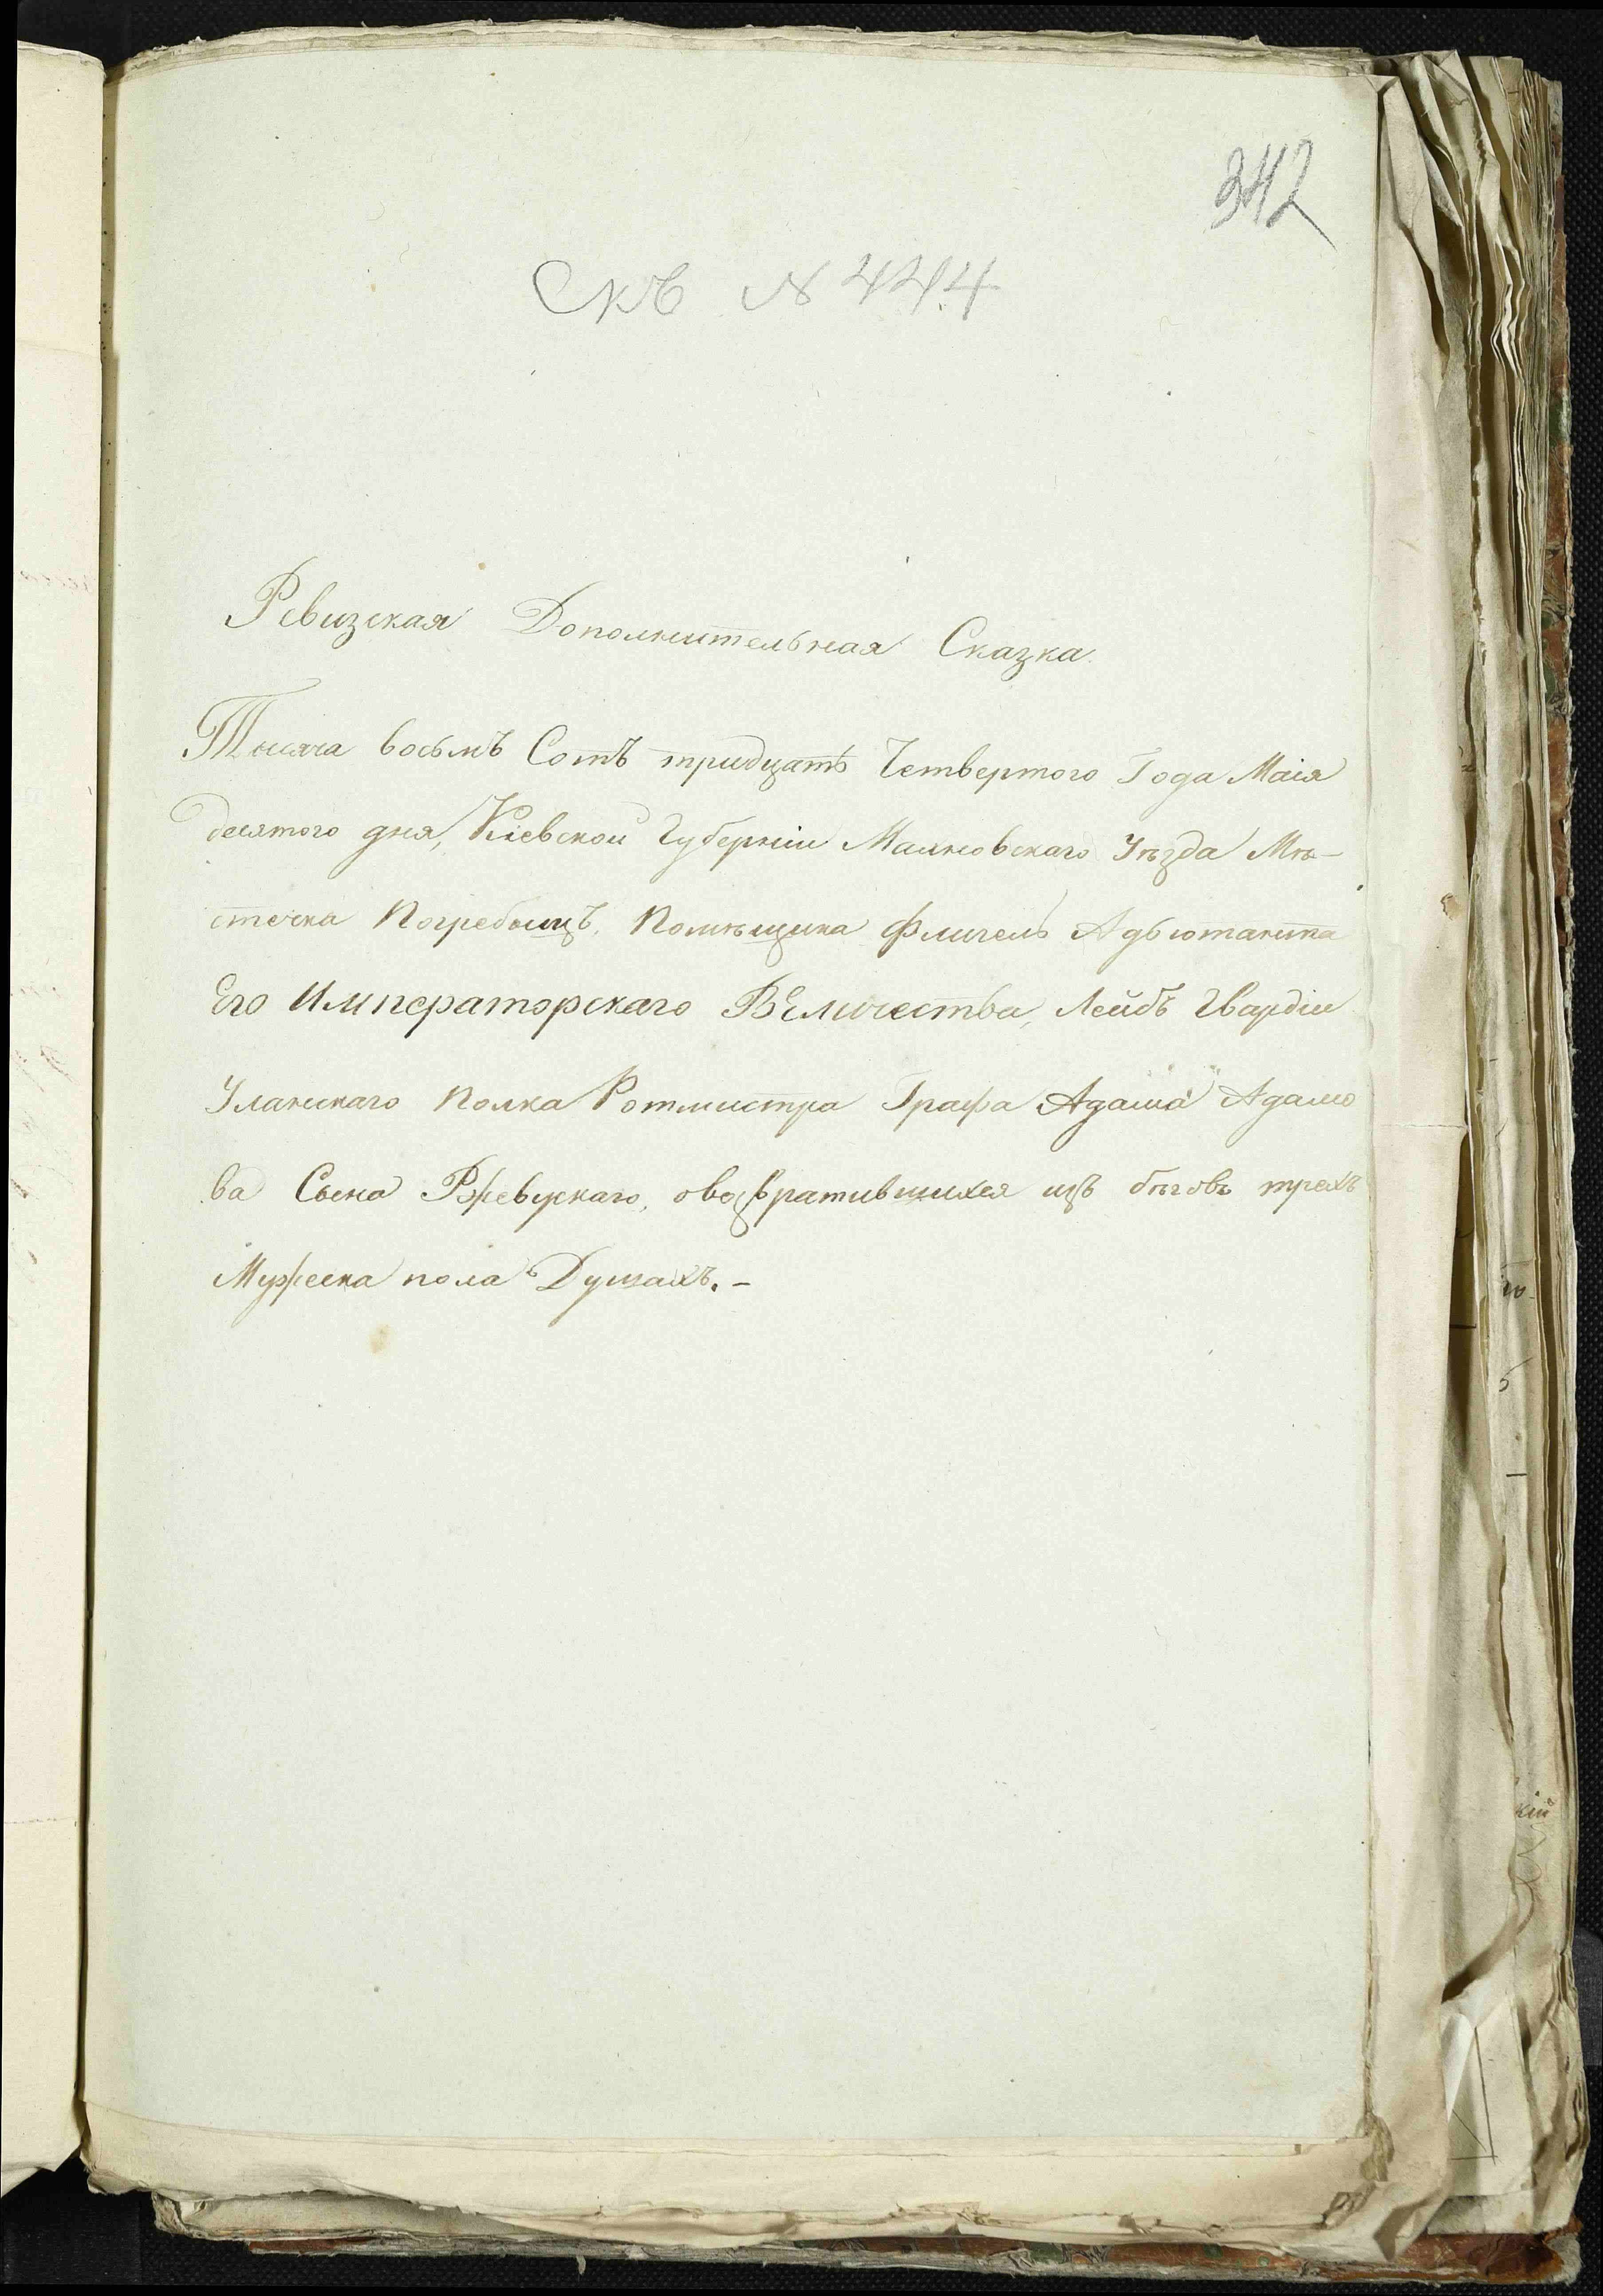 342
Скъ № 444
Ревизская Дополнительная Сказка.
Тысяча восьмъ Сотъ тридцать Четвертого Года Маія
десятого дня, Кіевской Губерніи Махновскаго Уѣзда Мѣ-
стечка Погребищъ, Помѣщика Флигель Адьютанта
Его Императорскаго ВЕличества, Лейбъ Гвардіи
Уланскаго Полка Ротмистра Графа Адама Адамо
ва Сына Ржевускаго, овозвратившихся изъ бѣговъ трехъ
Мужеска пола Душахъ.-